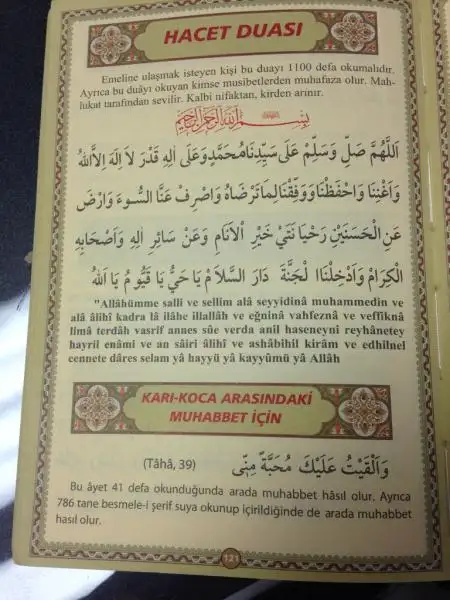 HACET DUASI
Emeline ulaşmak isteyen kişi bu duayı 1100 defa okumalıdır.
Ayrıca bu duâyı okuyan kimse musibetlerden muhafaza olur. Mah-
lukat tarafından sevilir. Kalbi nifaktan, kirden arınır.
بِسْمِ اللّٰهِ الرَّحْمٰنِ الرَّحِيمِ
اَللّٰهُمَّ صَلِّ وَسَلِّمْ عَلٰى سَيِّدِنَا مُحَمَّدٍ وَعَلٰى اٰلِهِ قَدْرَ لاَ اِلٰهَ اِلاَّ اللّٰهُ
وَاَغْنِنَا وَاحْفَظْنَا وَوَفِّقْنَا لِمَا تَرْضَاهُ وَاصْرِفْ عَنَّا السُّوءَ وَارْضَ
عَنِ الْحَسَنَيْنِ رَيْحَانَتَيْ خَيْرِ اْلاَنَامِ وَعَنْ سَائِرِ اٰلِهِ وَاَصْحَابِهِ
الْكِرَامْ وَاَدْخِلْنَا الْجَنَّةَ دَارَ السَّلاَمْ يَا حَيُّ يَا قَيُّومُ يَا اَللّٰهُ
"Allâhümme salli ve sellim alâ seyyidinâ muhammedin ve
alâ âlihî kadra lâ ilâhe illallâh ve eğninâ vahfeznâ ve veffiknâ
limâ terdâh vasrif annes sûe verda anil haseneyni reyhânetey
hayril enâmi ve an sâiri âlihî ve ashâbihil kirâm ve edhilnel
cennete dâres selam yâ hayyü yâ kayyûmü yâ Allâh
KARI-KOCA ARASINDAKİ
MUHABBET İÇİN
وَاَلْقَيْتُ عَلَيْكَ مَحَبَّةً مِنّ۪ى (Tâhâ, 39)
Bu âyet 41 defa okunduğunda arada muhabbet hâsıl olur. Ayrıca
786 tane besmele-i şerif suya okunup içirildiğinde de arada muhabbet
hasıl olur.
121